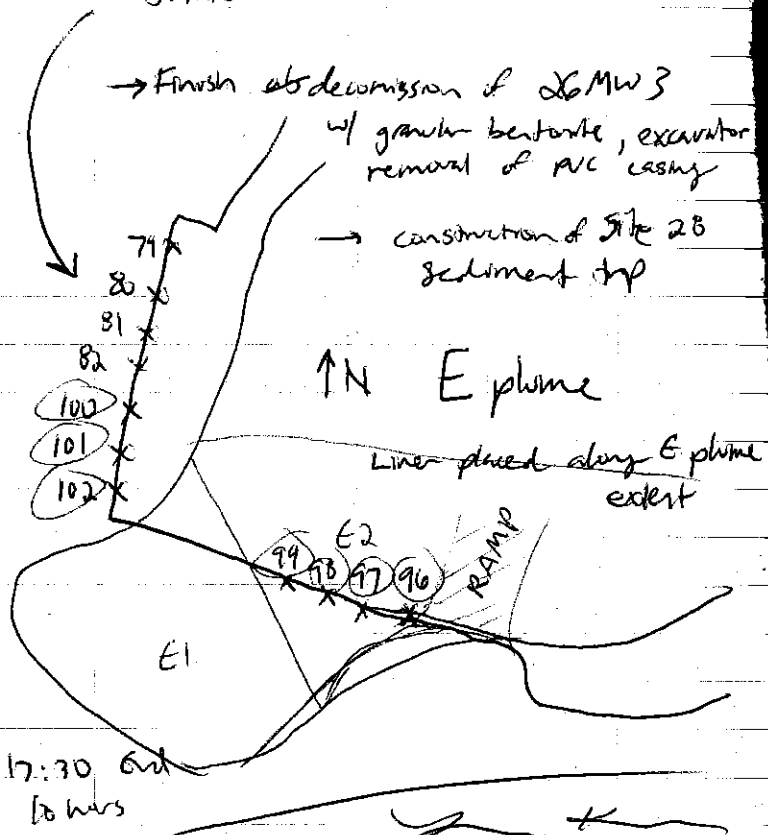 → Finish decomission of 26MW3
w/ granular bentonite, excavator
removal of PVC casing
→ construction of Site 28
Sediment trap
79
80
81
82
100
101
102
↑N E plume
Liner placed along E plume
extent
E2
99 98 97 96
RAMP
E1
17:30 End
10 hours